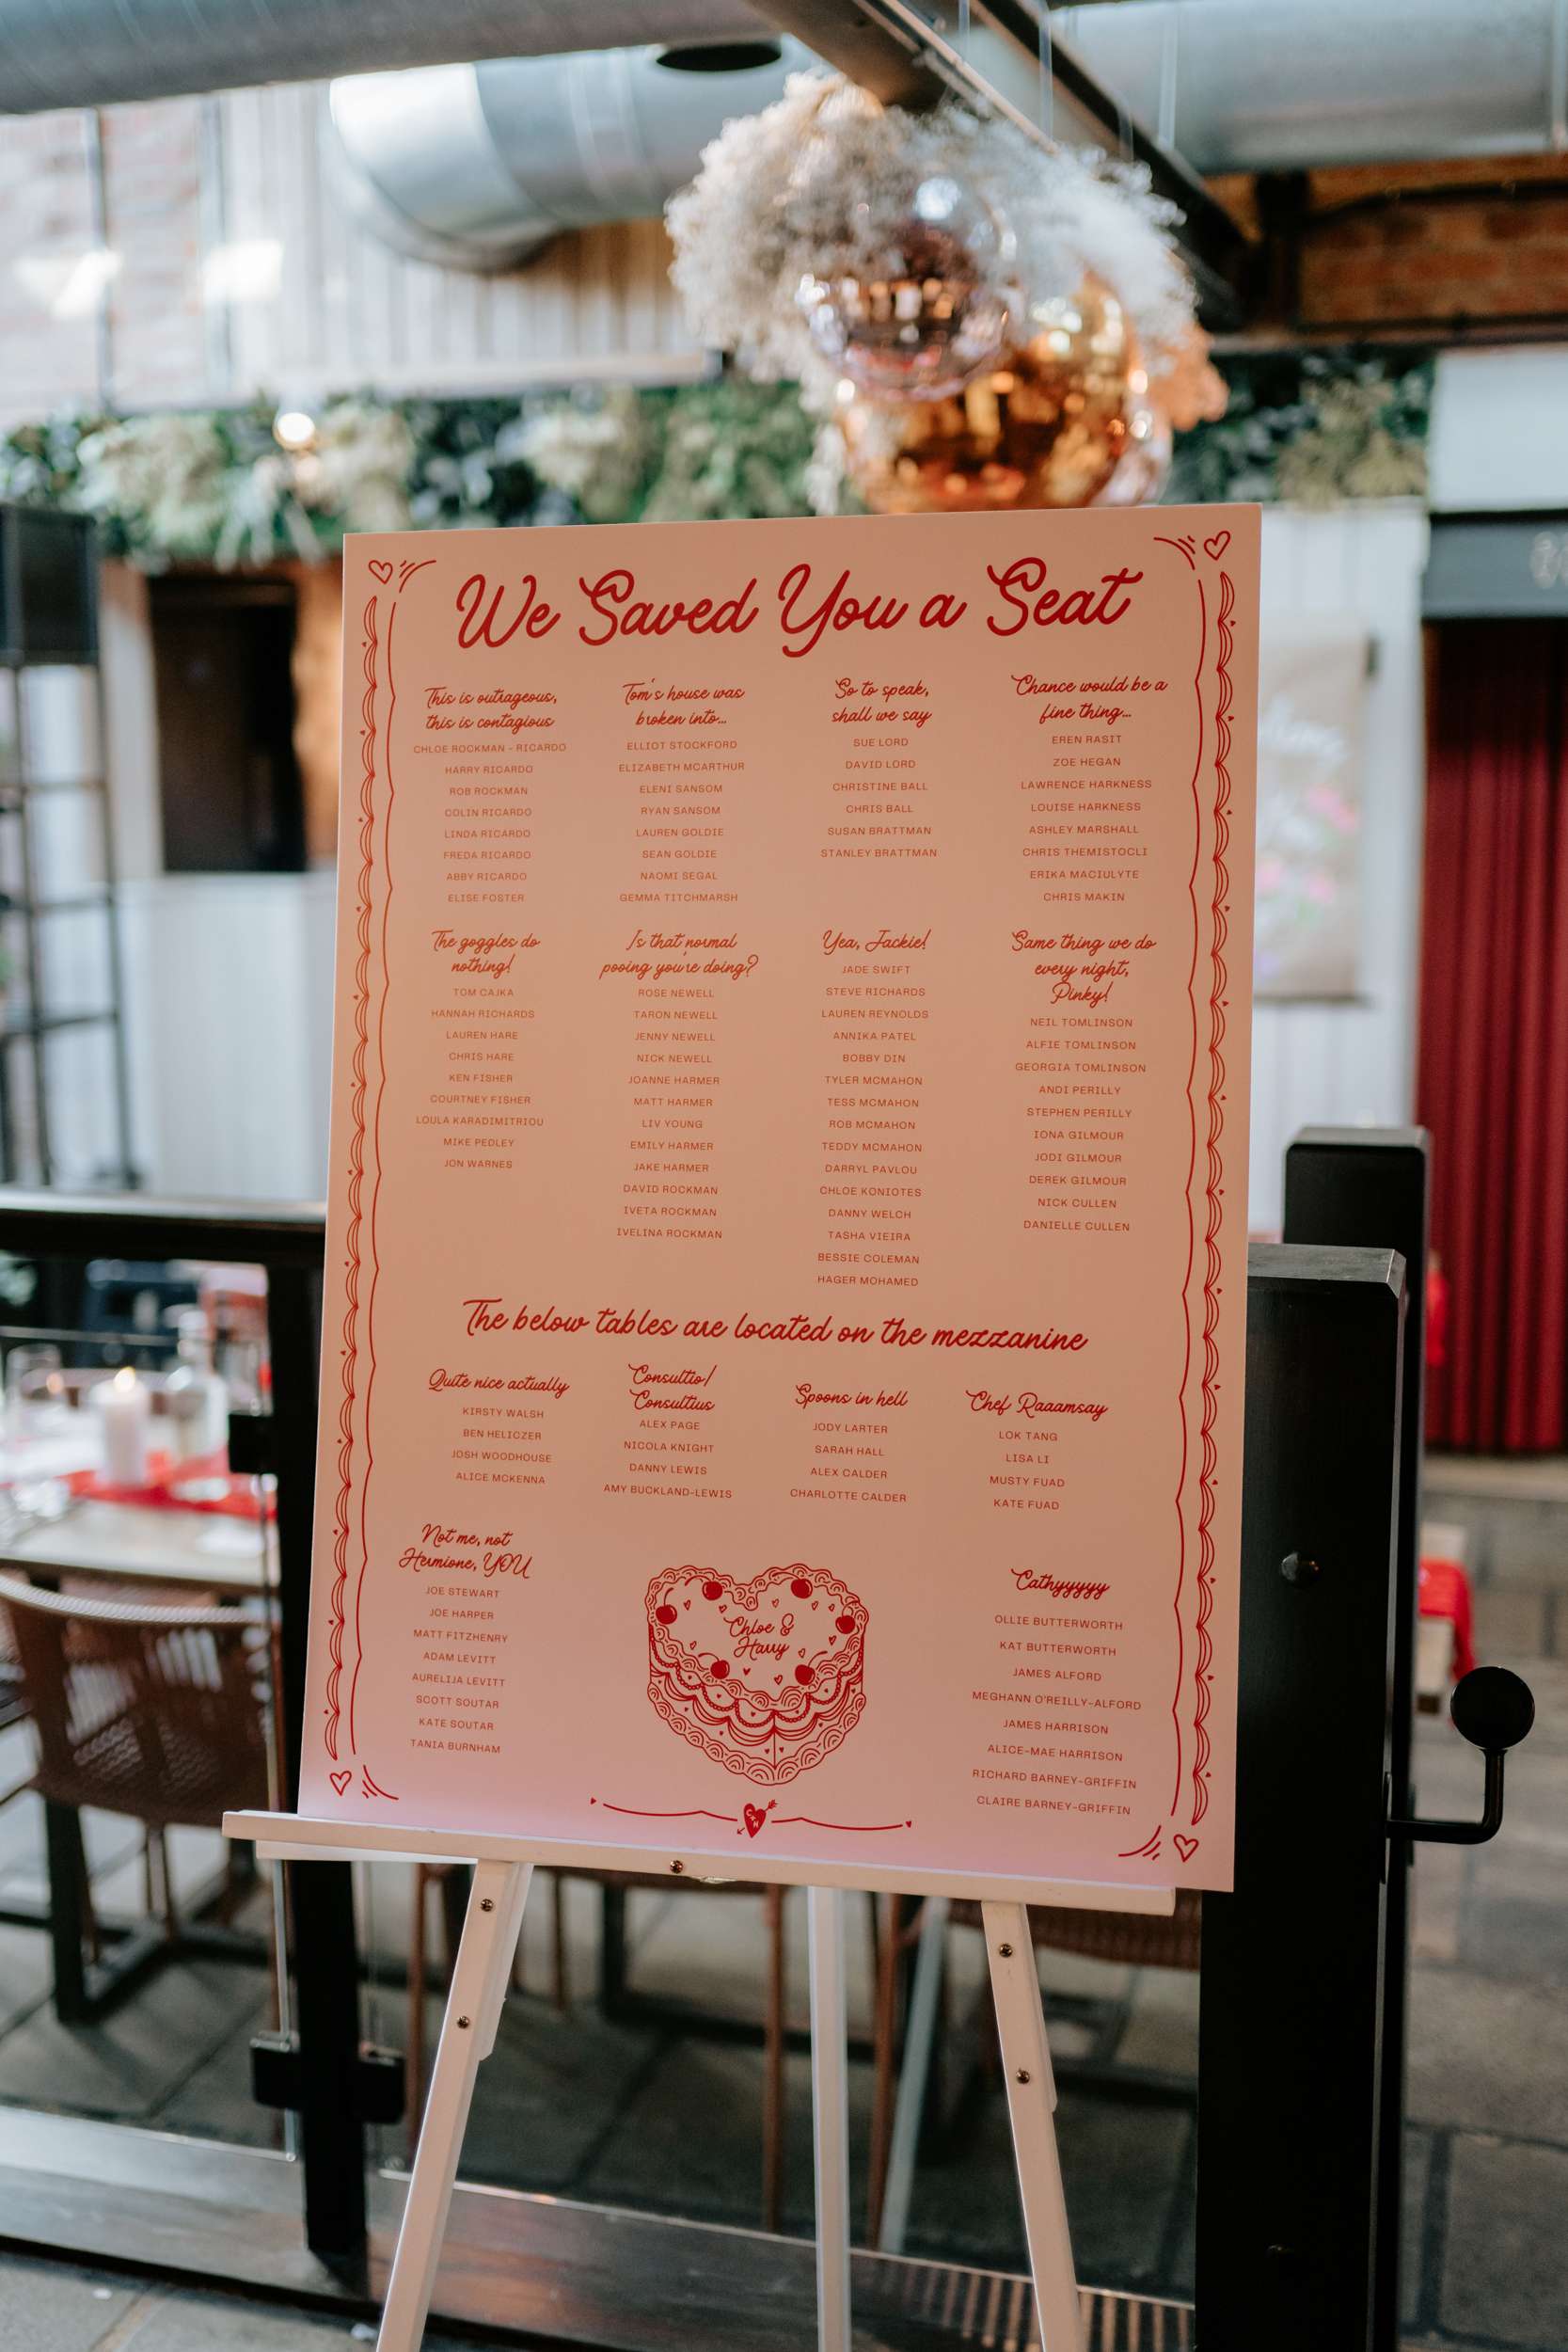 We Saved You a Seat
This is outrageous,
this is contagious
CHLOE ROCKMAN - RICARDO
HARRY RICARDO
ROB ROCKMAN
COLIN RICARDO
LINDA RICARDO
FREDA RICARDO
ABBY RICARDO
ELISE FOSTER
Tom's house was
broken into...
ELLIOT STOCKFORD
ELIZABETH MCARTHUR
ELENI SANSOM
RYAN SANSOM
LAUREN GOLDIE
SEAN GOLDIE
NAOMI SEGAL
GEMMA TITCHMARSH
So to speak,
shall we say
SUE LORD
DAVID LORD
CHRISTINE BALL
CHRIS BALL
SUSAN BRATTMAN
STANLEY BRATTMAN
Chance would be a
fine thing...
EREN RASIT
ZOE HEGAN
LAWRENCE HARKNESS
LOUISE HARKNESS
ASHLEY MARSHALL
CHRIS THEMISTOCLI
ERIKA MACIULYTE
CHRIS MAKIN
The goggles do
nothing!
TOM CAJKA
HANNAH RICHARDS
LAUREN HARE
CHRIS HARE
KEN FISHER
COURTNEY FISHER
LOULA KARADIMITRIOU
MIKE PEDLEY
JON WARNES
Is that normal
pooing you're doing?
ROSE NEWELL
TARON NEWELL
JENNY NEWELL
NICK NEWELL
JOANNE HARMER
MATT HARMER
LIV YOUNG
EMILY HARMER
JAKE HARMER
DAVID ROCKMAN
IVETA ROCKMAN
IVELINA ROCKMAN
Yea, Jackie!
JADE SWIFT
STEVE RICHARDS
LAUREN REYNOLDS
ANNIKA PATEL
BOBBY DIN
TYLER MCMAHON
TESS MCMAHON
ROB MCMAHON
TEDDY MCMAHON
DARRYL PAVLOU
CHLOE KONIOTES
DANNY WELCH
TASHA VIEIRA
BESSIE COLEMAN
HAGER MOHAMED
Same thing we do
every night,
Pinky!
NEIL TOMLINSON
ALFIE TOMLINSON
GEORGIA TOMLINSON
ANDI PERILLY
STEPHEN PERILLY
IONA GILMOUR
JODI GILMOUR
DEREK GILMOUR
NICK CULLEN
DANIELLE CULLEN
The below tables are located on the mezzanine
Quite nice actually
KIRSTY WALSH
BEN HELICZER
JOSH WOODHOUSE
ALICE MCKENNA
Consultio/
Consultius
ALEX PAGE
NICOLA KNIGHT
DANNY LEWIS
AMY BUCKLAND-LEWIS
Spoons in hell
JODY LARTER
SARAH HALL
ALEX CALDER
CHARLOTTE CALDER
Chef Raaamsay
LOK TANG
LISA LI
MUSTY FUAD
KATE FUAD
Not me, not
Hermione, YOU
JOE STEWART
JOE HARPER
MATT FITZHENRY
ADAM LEVITT
AURELIJA LEVITT
SCOTT SOUTAR
KATE SOUTAR
TANIA BURNHAM
Chloe &
Harry
Cathyyyyy
OLLIE BUTTERWORTH
KAT BUTTERWORTH
JAMES ALFORD
MEGHANN O'REILLY-ALFORD
JAMES HARRISON
ALICE-MAE HARRISON
RICHARD BARNEY-GRIFFIN
CLAIRE BARNEY-GRIFFIN